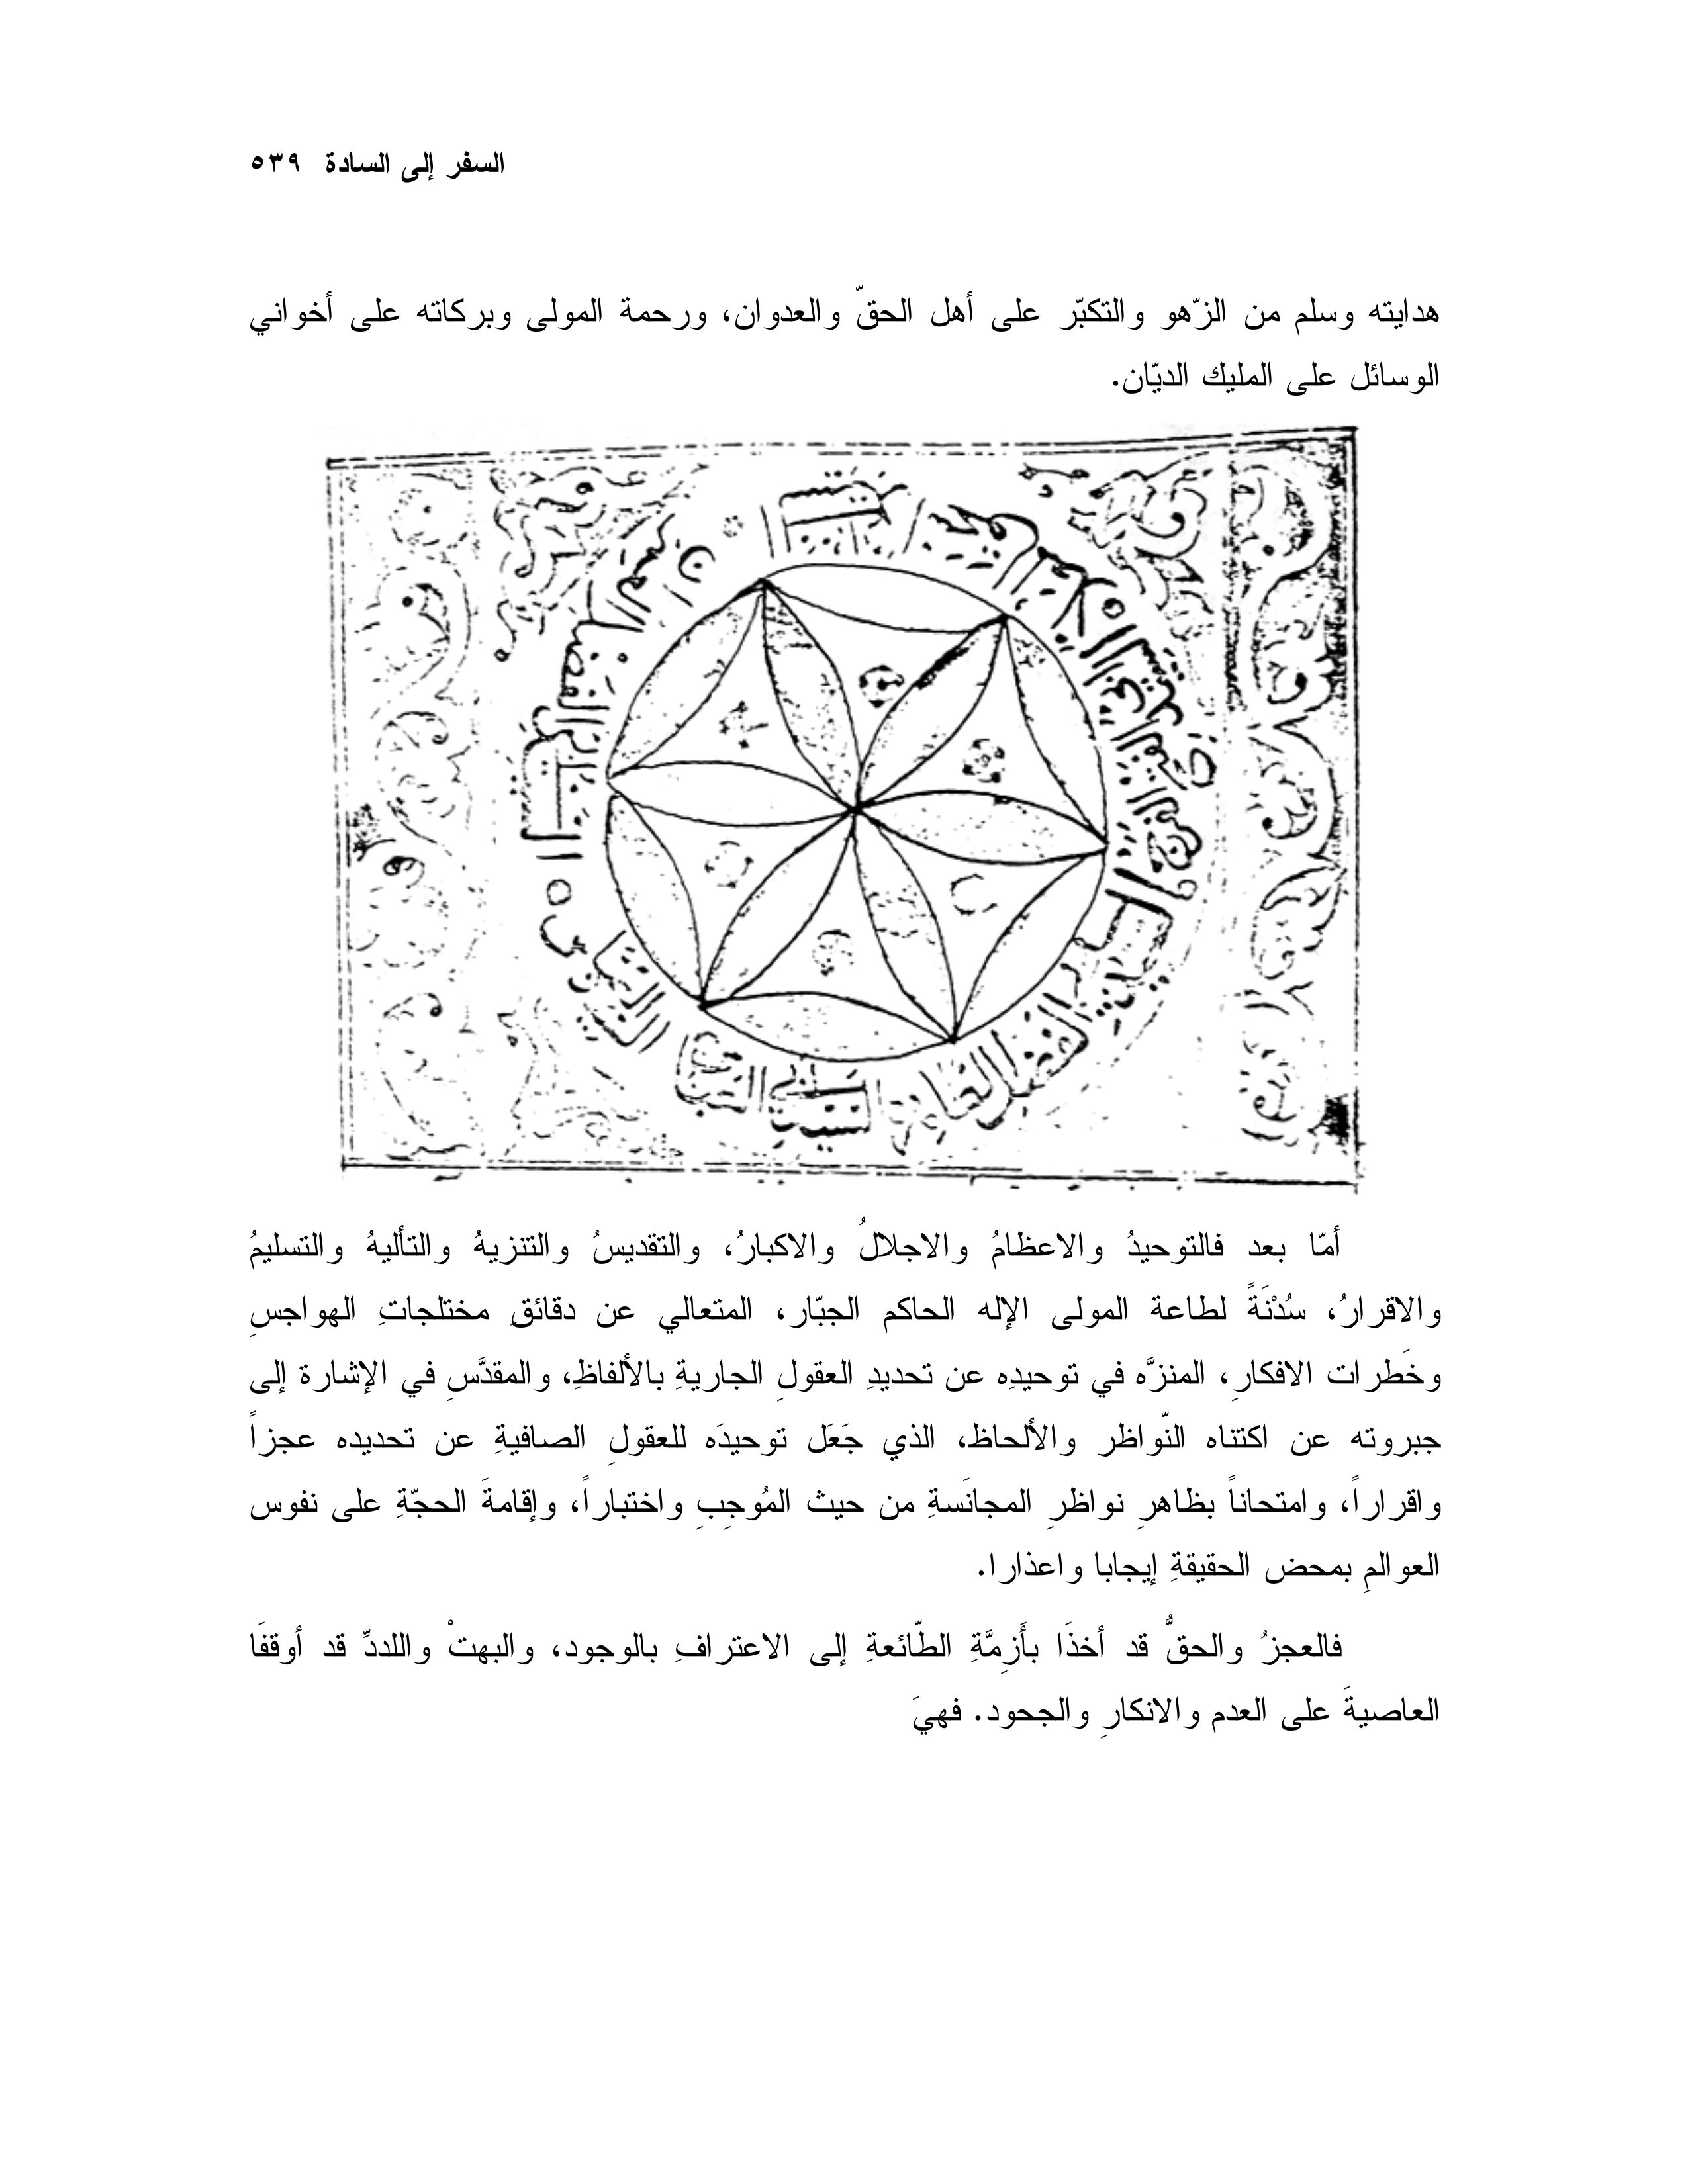 السفر إلى السادة ٥٣٩
هدايته وسلم من الزّهو والتكبّر على أهل الحقّ والعدوان، ورحمة المولى وبركاته على أخواني
الوسائل على المليك الديّان.
أمّا بعد فالتوحيدُ والاعظامُ والاجلالُ والاكبارُ، والتقديسُ والتنزيهُ والتأليهُ والتسليمُ
والاقرارُ، سُدْنَةً لطاعة المولى الإله الحاكم الجبّار، المتعالي عن دقائقِ مختلجاتِ الهواجسِ
وخَطرات الافكارِ، المنزَّه في توحيدِه عن تحديدِ العقولِ الجاريةِ بالألفاظِ، والمقدَّسِ في الإشارة إلى
جبروته عن اكتناه النّواظر والألحاظ، الذي جَعَل توحيدَه للعقولِ الصافيةِ عن تحديده عجزاً
واقراراً، وامتحاناً بظاهرِ نواظرِ المجانَسةِ من حيث المُوجِبِ واختباراً، وإقامةَ الحجّةِ على نفوس
العوالمِ بمحض الحقيقةِ إيجابا واعذارا.
فالعجزُ والحقُّ قد أخذَا بأَزِمَّةِ الطّائعةِ إلى الاعترافِ بالوجود، والبهتْ واللددِّ قد أوقفَا
العاصيةَ على العدم والانكارِ والجحود. فهيَ